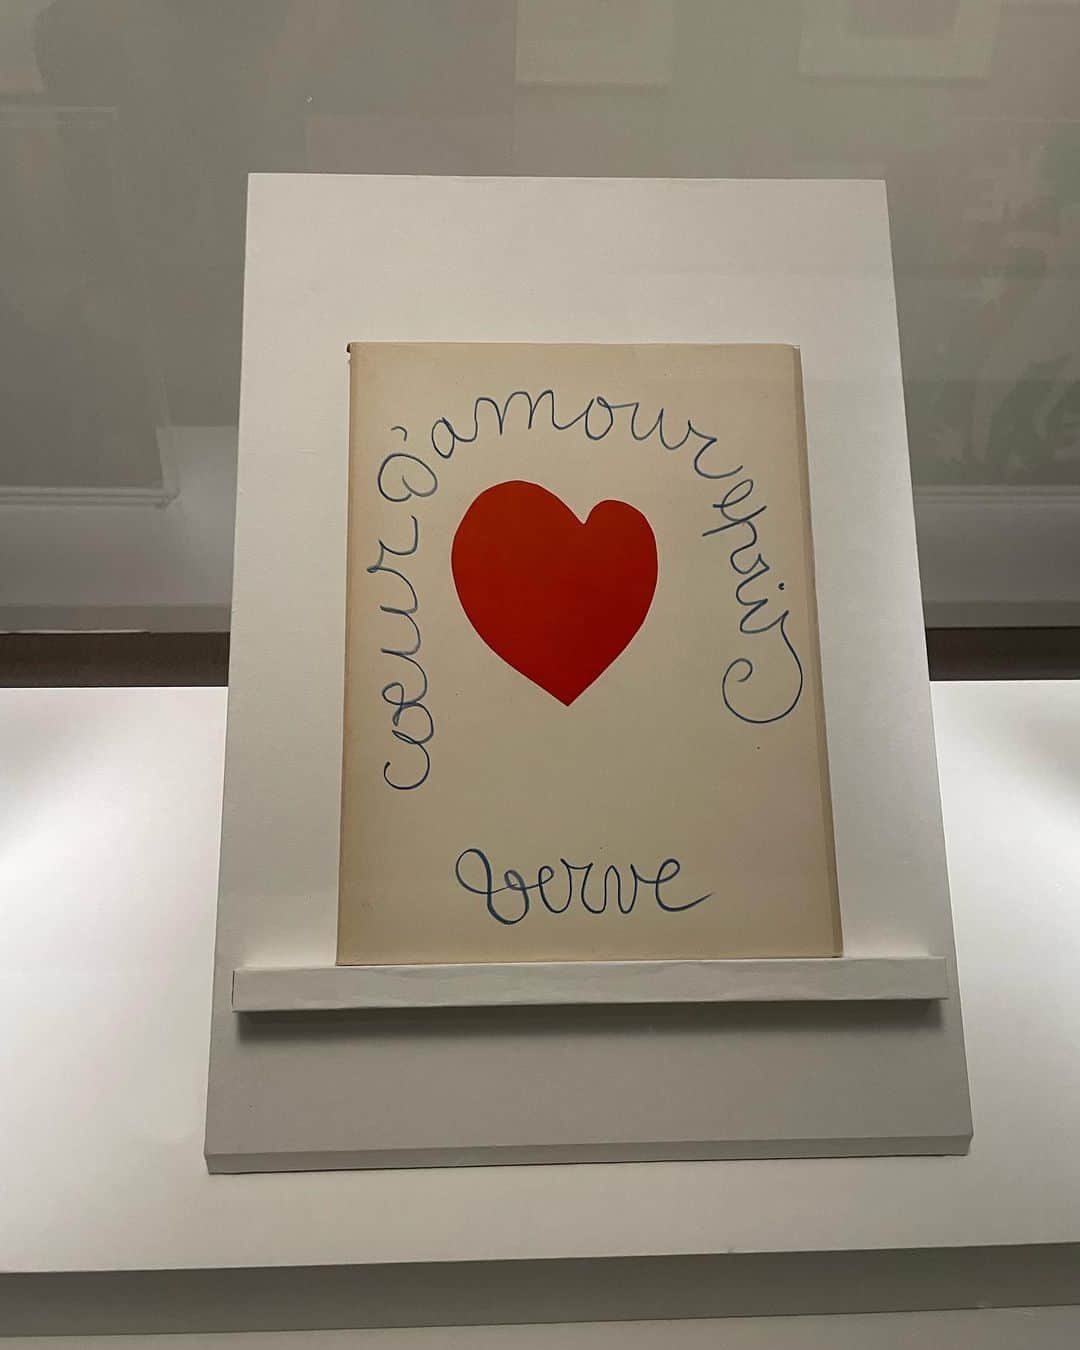 cœur d'amour épris
verve